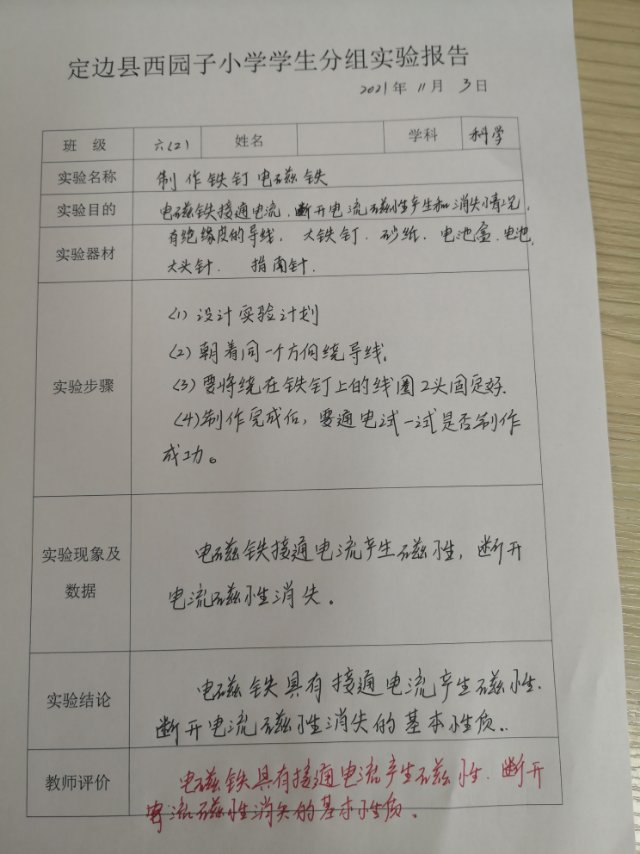 定边县西园子小学学生分组实验报告
2021年 11月 3日
班 级 六(2) 姓名 学科 科学
实验名称 制作铁钉电磁铁
实验目的 电磁铁接通电流、断开电流磁性产生和消失情况.
实验器材 有绝缘皮的导线. 大铁钉. 砂纸. 电池盒. 电池.
大头针. 指南针.
实验步骤
(1) 设计实验计划
(2) 朝着同一个方向绕导线.
(3) 要将绕在铁钉上的线圈2头固定好.
(4) 制作完成后, 要通电试一试是否制作
成功。
实验现象及
数据
电磁铁接通电流产生磁性, 断开
电流磁性消失.
实验结论
电磁铁具有接通电流产生磁性.
断开电流磁性消失的基本性质..
教师评价
电磁铁具有接通电流产生磁性. 断开
电流磁性消失的基本性质.